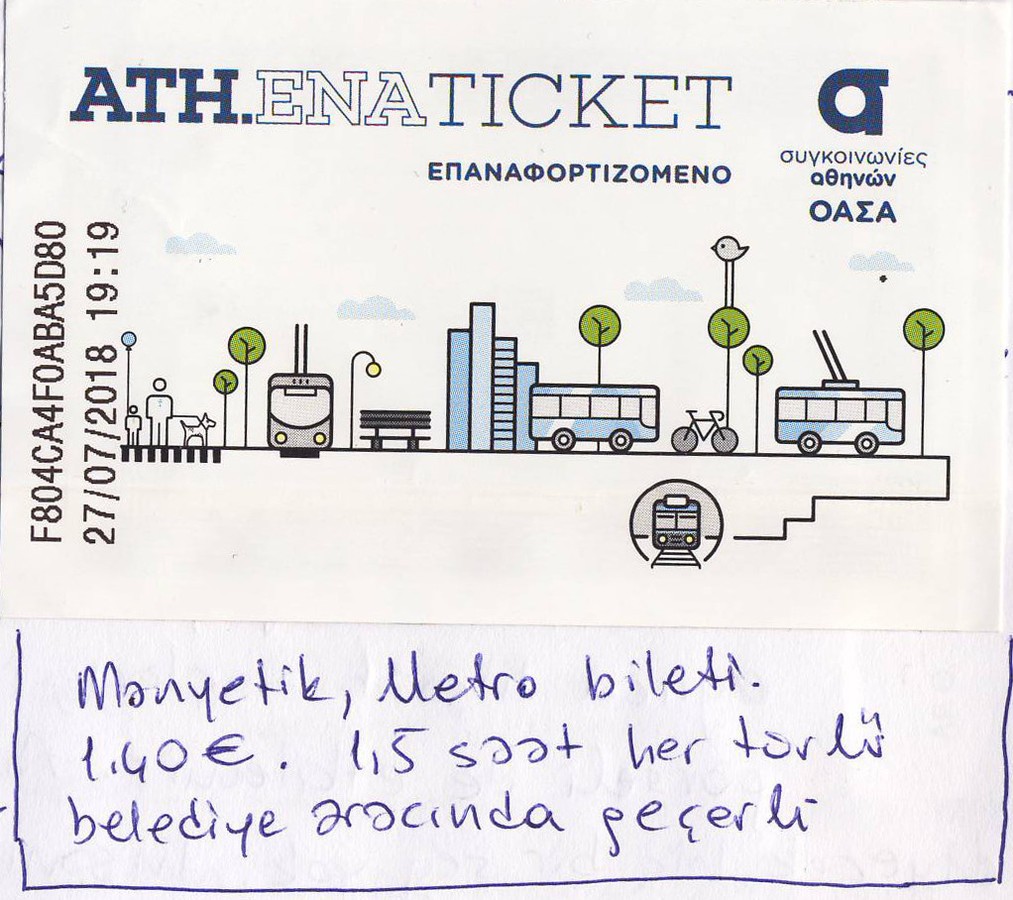 ATH.ENA TICKET
ΕΠΑΝΑΦΟΡΤΙΖΟΜΕΝΟ
συγκοινωνίες
αθηνών
ΟΑΣΑ
F804CA4F0ABA5D80
27/07/2018 19:19
Manyetik, Metro bileti.
1.40€. 1,5 saat her türlü
belediye aracında geçerli